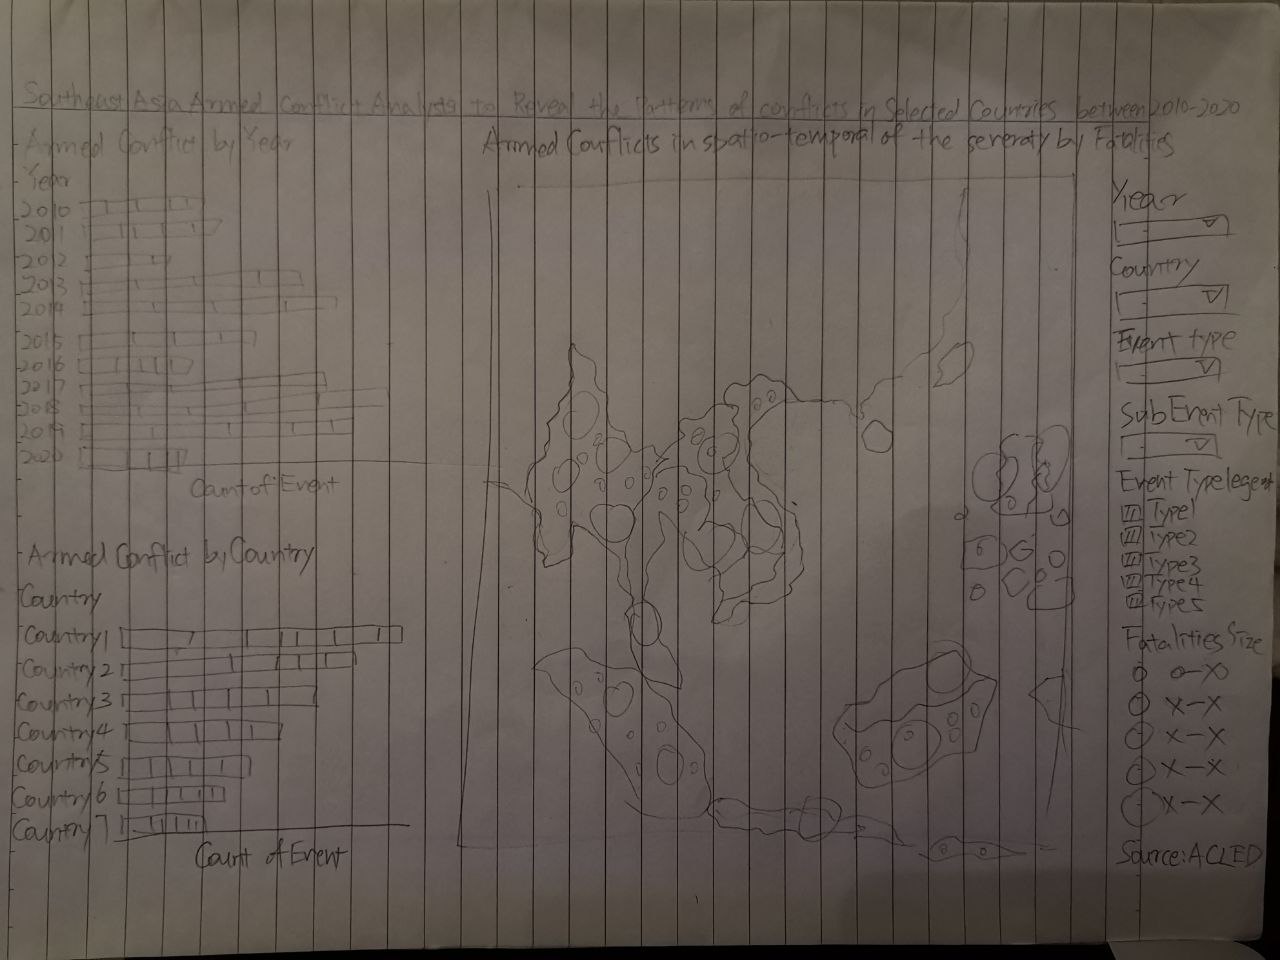 Southeast Asia Armed Conflict Analysis to Reveal the Patterns of conflicts in Selected Countries between 2010-2020
Armed Conflict by Year
Year
2010
2011
2012
2013
2014
2015
2016
2017
2018
2019
2020
Count of Event
Armed Conflict by Country
Country
Country1
Country2
Country3
Country4
Country5
Country6
Country7
Count of Event
Armed Conflicts in spatio-temporal of the severaty by Fatalities
Year
Country
Event type
Sub Event Type
Event Type legent
Type1
Type2
Type3
Type4
Type5
Fatalities Size
0-X
X-X
X-X
X-X
X-X
Source: ACLED